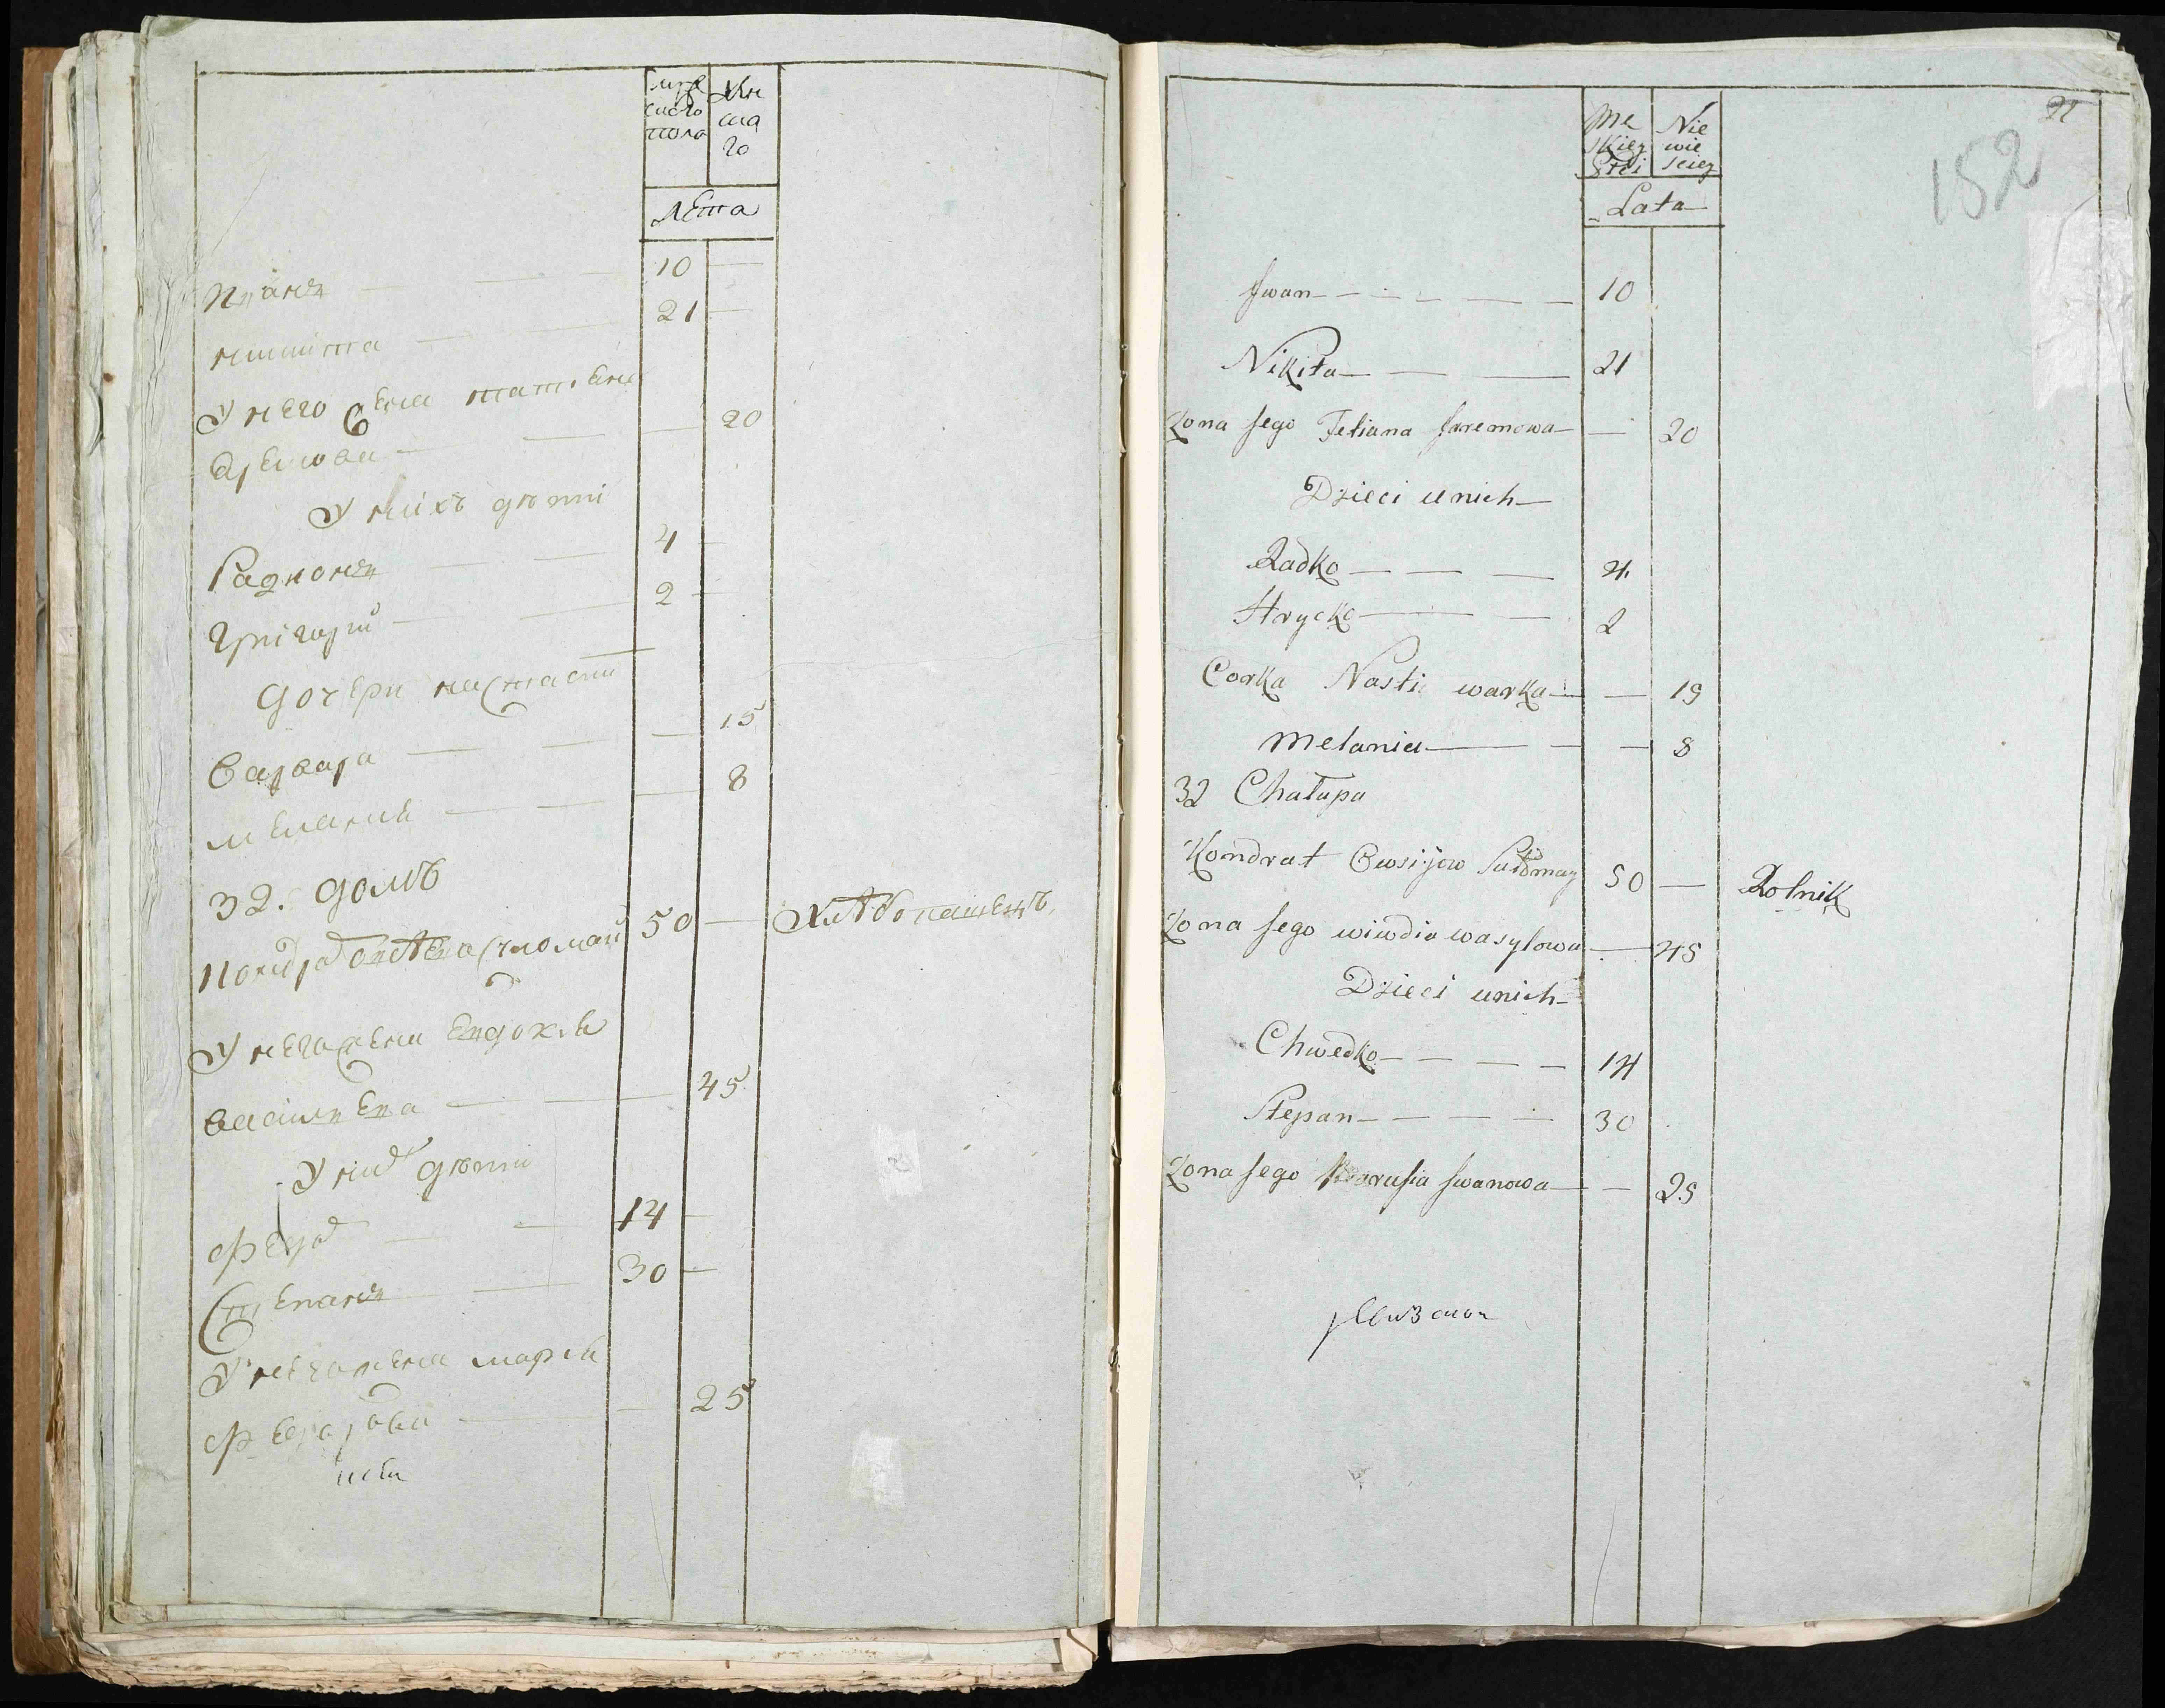 муже
ско
пола
Жен
ска
го
Лета
Иванъ — — 10 —
Никита — — 21 —
У него жена татияна
Еремова — — — 20
У нихъ дѣти
Радионъ — — 4 —
Григорій — — 2 —
Дочери настасия
Варвара — — — 15
Мелания — — — 8
32. домъ
Кондрат 50 — Хлѣбопашецъ
У него жена Евдокия
Василиева — — — 45
У них дѣти
Федор — — 14 —
Степанъ — — 30 —
У него жена мария
— — 25
Mę
skiey
Płci
Nie
wie
sciey
Lata
21
152
Jwan — — — — 10
Nikita — — — 21
Zona Jego Tetiana Jaremowa — — 20
Dzieci u nich —
Radko — — — 4
Hrycko — — 2
Corka Nasti warka — — 15
Melania — — — 8
32 Chałupa
Kondrat Owsijow Sułomay 50 — Rolnik
Zona Jego wiwdia wasylowa — 45
Dzieci u nich —
Chwedko — — — 14
Stepan — — — — 30
Zona Jego Marusia Jwanowa — — 25